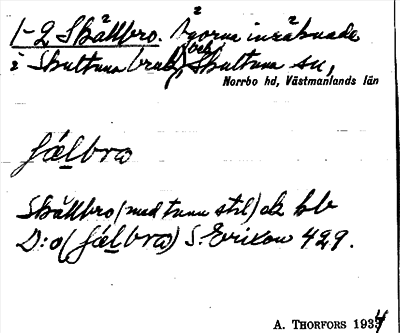 1-2 Skällbro. Byorna inräknade
i Skultuna bruk, och Skultuna sn,
Norrbo hd, Västmanlands län
fäḻbro
Skällbro (med tunn stil) ek bb
D:o (fäḻbro) S. Erixon 429.
A. THORFORS 1934